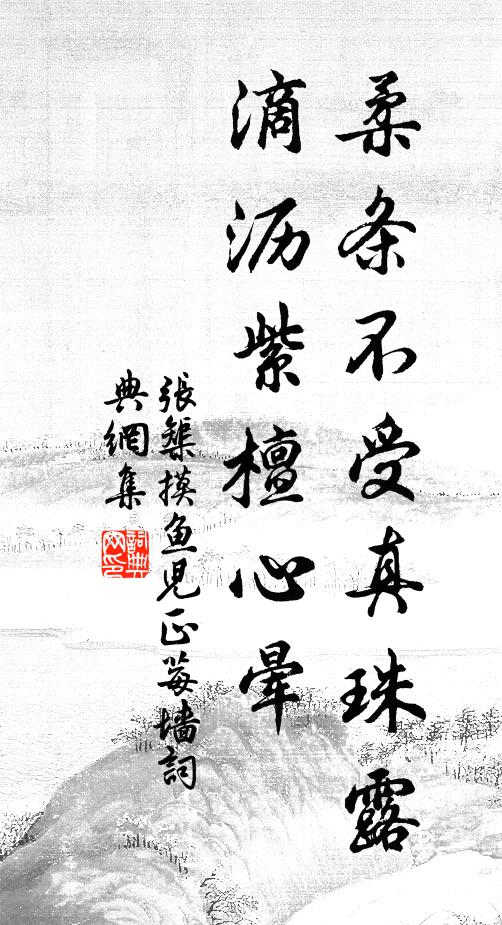 柔条不受真珠露
滴沥紫檀心晕
張榘摸鱼児正莓墙詞
典網集
詞典網印